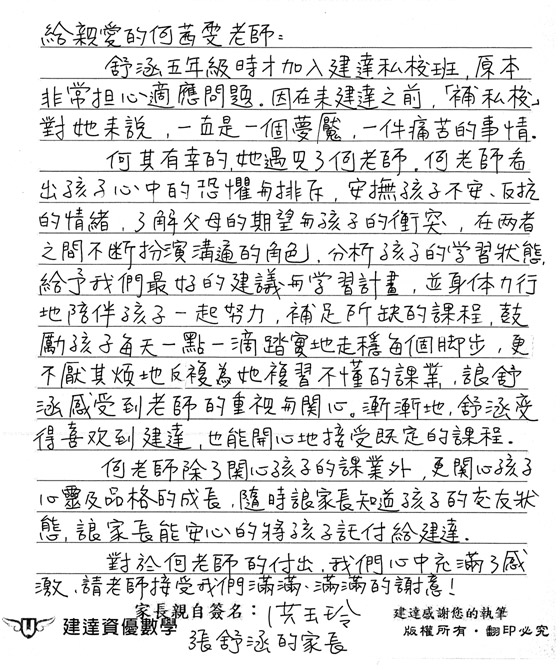 給親愛的何茜雯老師:
舒涵五年級時才加入建達私校班,原本
非常担心適應問題.因在未建達之前,「補私校」
對她來說,一直是一個夢魘,一件痛苦的事情.
何其有幸的,她遇見了何老師.何老師看
出孩子心中的恐懼与排斥,安撫孩子不安、反抗
的情緒,了解父母的期望与孩子的衝突,在兩者
之間不斷扮演溝通的角色,分析孩子的学習狀態,
給予我們最好的建議与学習計畫,並身体力行
地陪伴孩子一起努力,補足所缺的課程,鼓
勵孩子每天一點一滴踏實地走穩每個脚步,更
不厭其煩地反複為她複習不懂的課業,讓舒
涵感受到老師的重視与関心。漸漸地,舒涵变
得喜欢到建達,也能開心地接受既定的課程.
何老師除了関心孩子的課業外,更関心孩子
心靈及品格的成長,隨時讓家長知道孩子的交友狀
態,讓家長能安心的將孩子託付給建達.
對於何老師的付出,我們心中充滿了感
激,請老師接受我們滿滿、滿滿的謝意!
家長親自簽名:洪玉玲 建達感謝您的執筆
建達資優數學 張舒涵的家長 版權所有‧翻印必究